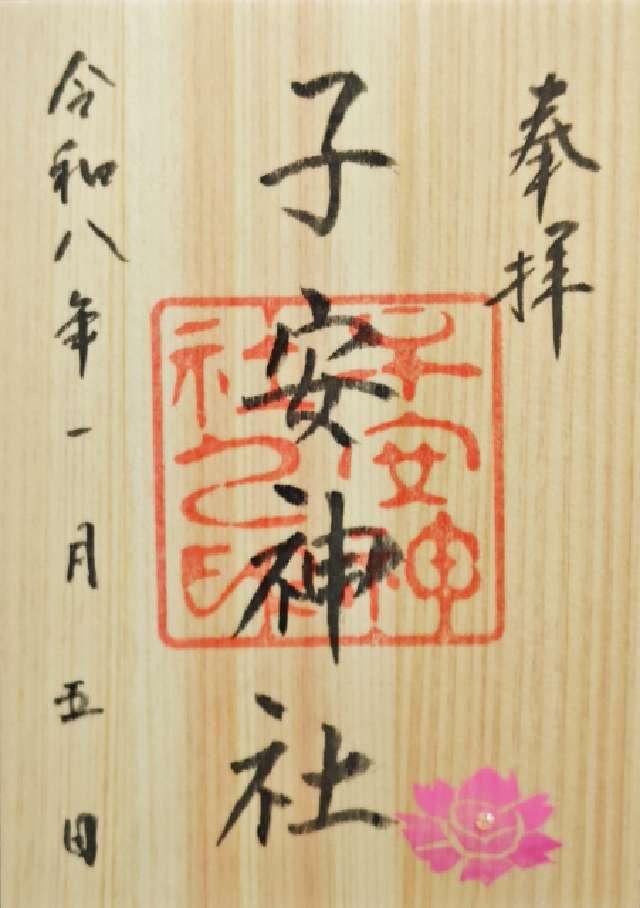 奉拝
子安神社
子安神社之印
令和八年一月五日